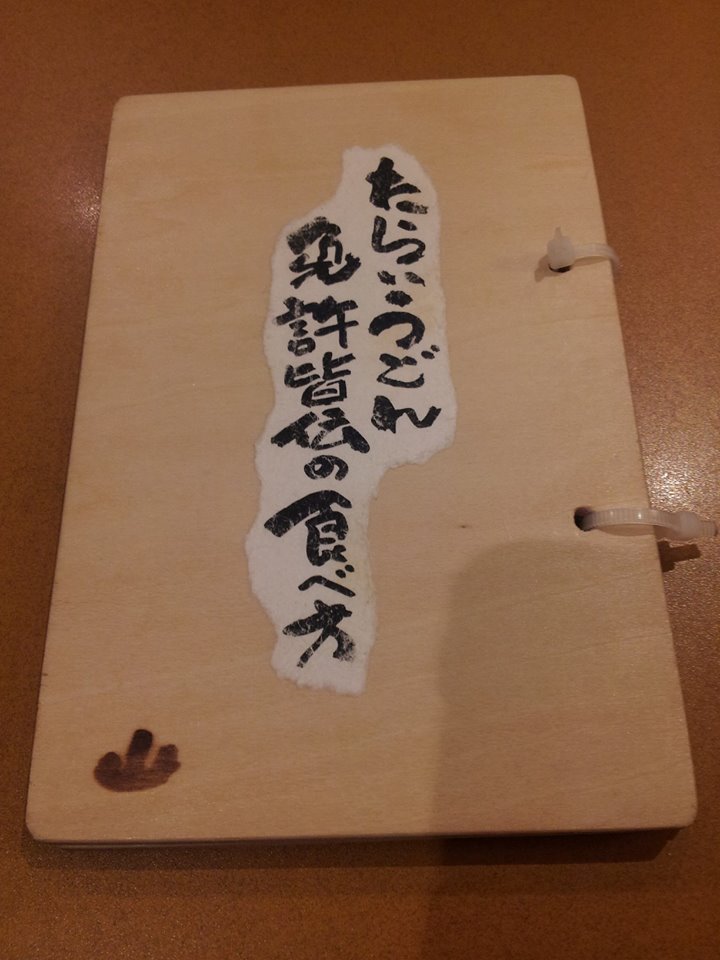 たらいうどん
免許皆伝の食べ方
山